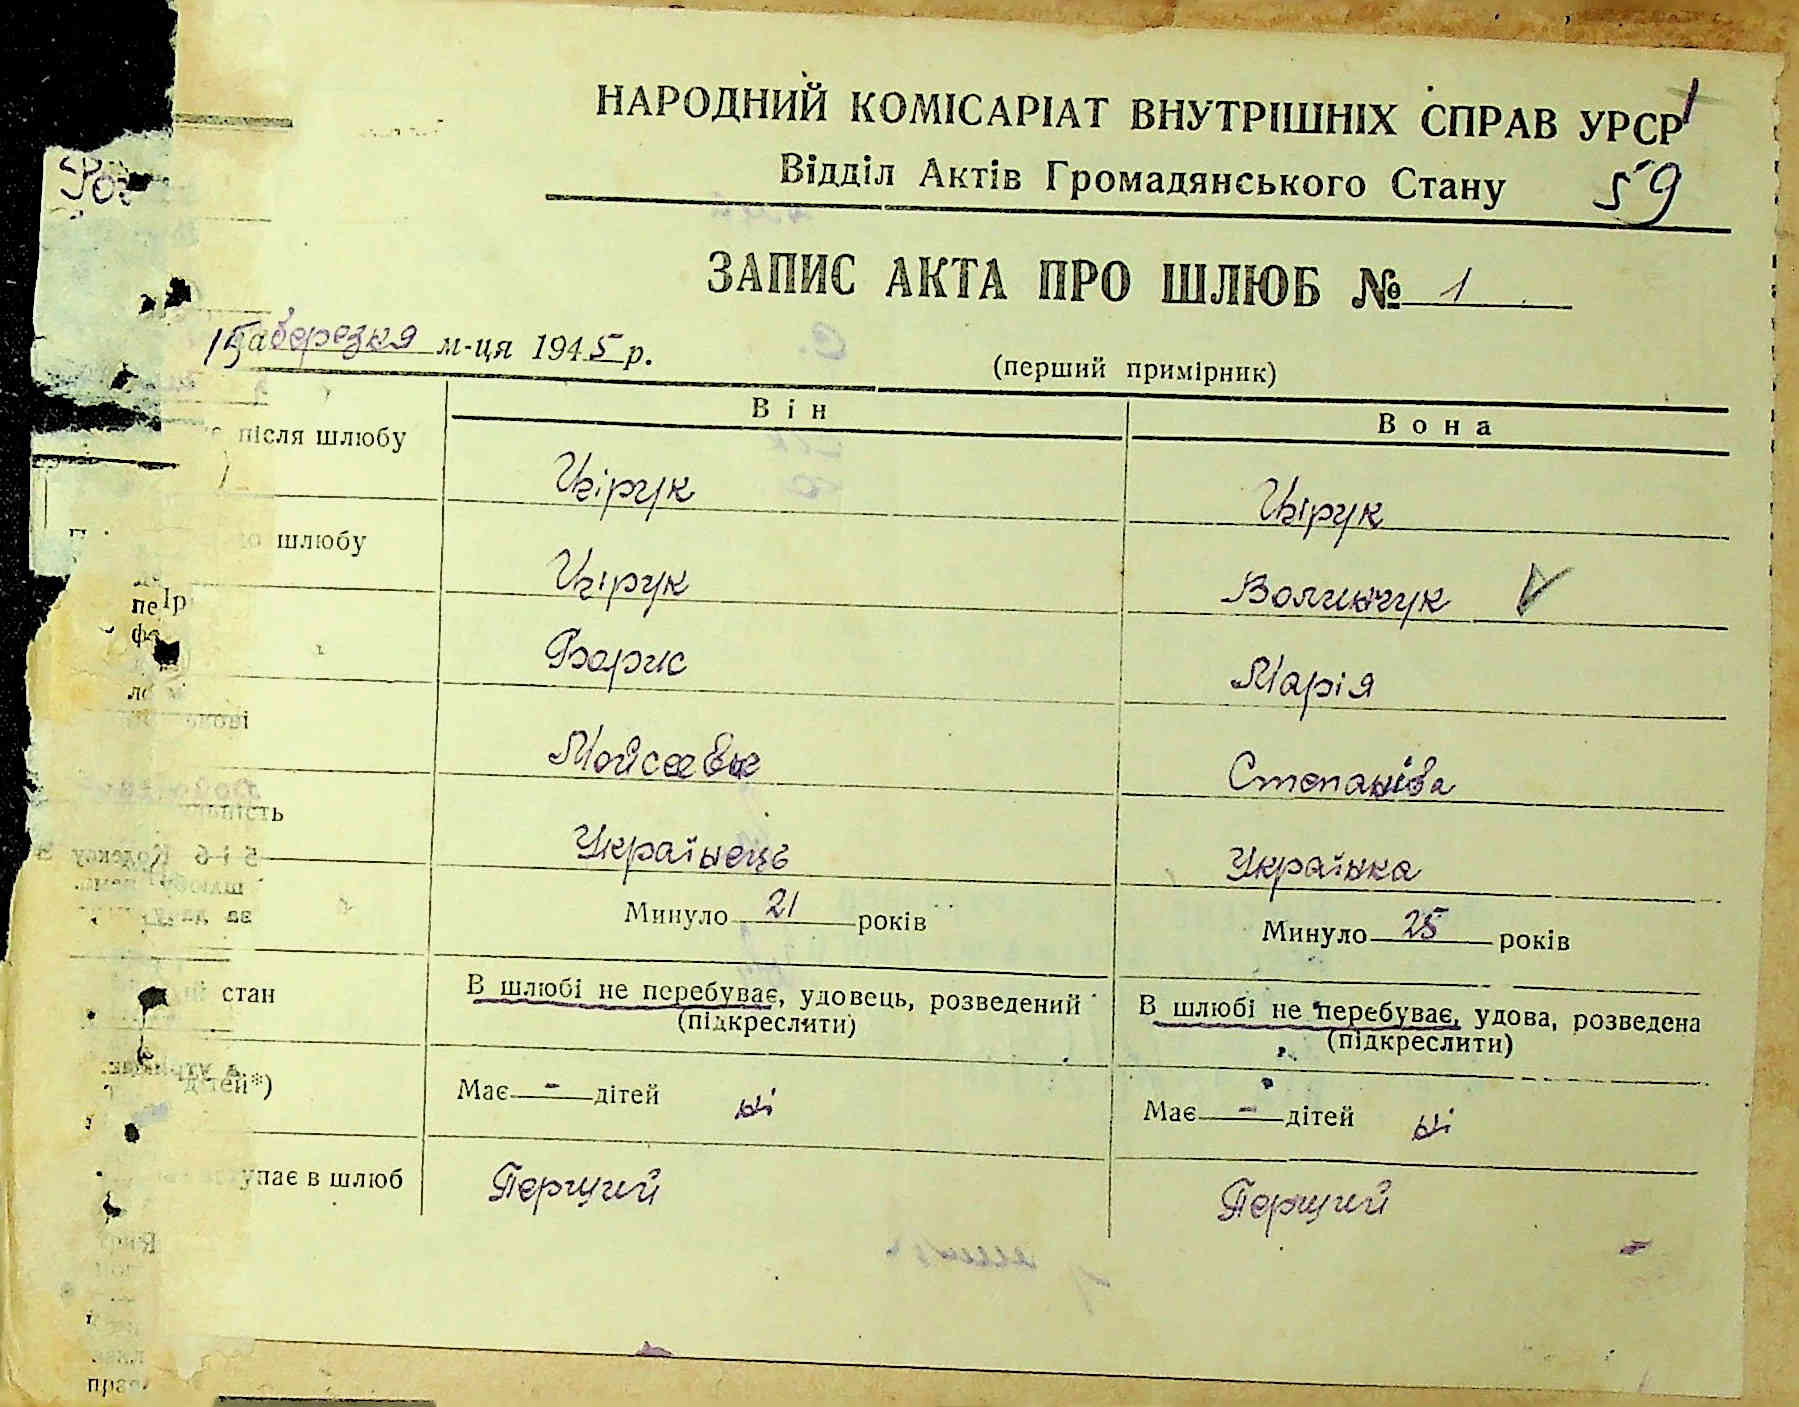 НАРОДНИЙ КОМІСАРІАТ ВНУТРІШНІХ СПРАВ УРСР
1
Відділ Актів Громадянського Стану
59
ЗАПИС АКТА ПРО ШЛЮБ № 1
15 березня м-ця 1945 р.
(перший примірник)
Він Вона
після шлюбу Цірук Цірук
до шлюбу Цірук Волинчук
Борис Марія
Мойсеев Степанівa
Українець Українка
Минуло 21 років Минуло 25 років
стан В шлюбі не перебуває, удовець, розведений В шлюбі не перебуває, удова, розведена
(підкреслити) (підкреслити)
дітей*) Має - дітей ні Має - дітей ні
упає в шлюб Перщий Перщий